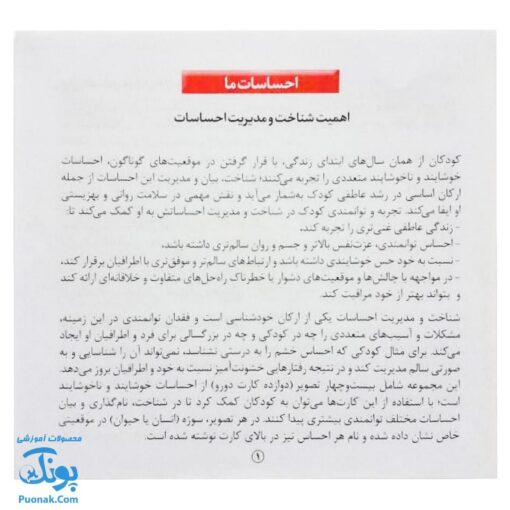 احساسات ما
اهمیت شناخت و مدیریت احساسات
کودکان از همان سال‌های ابتدای زندگی، با قرار گرفتن در موقعیت‌های گوناگون، احساسات
خوشایند و ناخوشایند متعددی را تجربه می‌کنند؛ شناخت، بیان و مدیریت این احساسات از جمله
ارکان اساسی در رشد عاطفی کودک به‌شمار می‌آید و نقش مهمی در سلامت روانی و بهزیستی
او ایفا می‌کند. تجربه و توانمندی کودک در شناخت و مدیریت احساساتش به او کمک می‌کند تا:
- زندگی عاطفی غنی‌تری را تجربه کند،
- احساس توانمندی، عزت‌نفس بالاتر و جسم و روان سالم‌تری داشته باشد،
- نسبت به خود حس خوشایندی داشته باشد و ارتباط‌های سالم‌تر و موفق‌تری با اطرافیان برقرار کند،
- در مواجهه با چالش‌ها و موقعیت‌های دشوار یا خطرناک راه‌حل‌های متفاوت و خلاقانه‌ای ارائه کند
و بتواند بهتر از خود مراقبت کند.
شناخت و مدیریت احساسات یکی از ارکان خودشناسی است و فقدان توانمندی در این زمینه،
مشکلات و آسیب‌های متعددی را چه در کودکی و چه در بزرگسالی برای فرد و اطرافیان او ایجاد
می‌کند. برای مثال کودکی که احساس خشم را به درستی نشناسد، نمی‌تواند آن را شناسایی و به
صورتی سالم مدیریت کند و در نتیجه رفتارهایی خشونت‌آمیز نسبت به خود و اطرافیان بروز می‌دهد.
این مجموعه شامل بیست‌وچهار تصویر (دوازده کارت دورو) از احساسات خوشایند و ناخوشایند
است؛ با استفاده از این کارت‌ها می‌توان به کودکان کمک کرد تا در شناخت، نام‌گذاری و بیان
احساسات مختلف توانمندی بیشتری پیدا کنند. در هر تصویر، سوژه (انسان یا حیوان) در موقعیتی
خاص نشان داده شده و نام هر احساس نیز در بالای کارت نوشته شده است.
۱
محصولات آموزشی
پونک
Puonak.Com